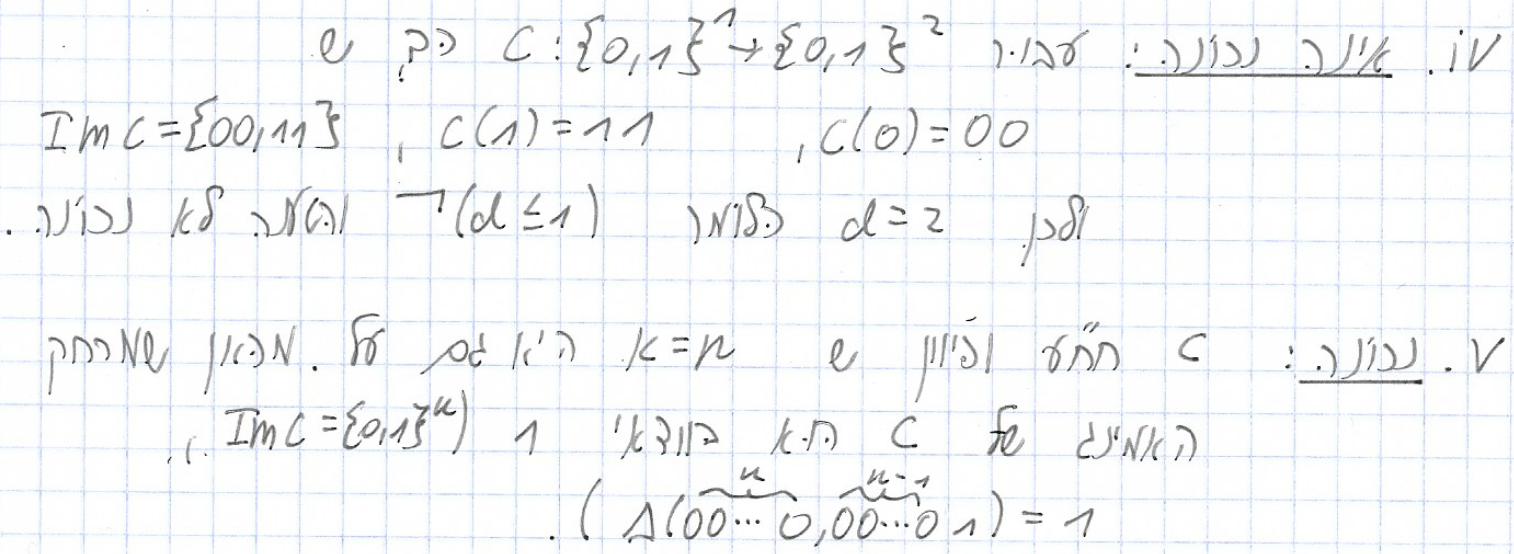 iv. אינה נכונה: עבור C:{0,1}¹→{0,1}² כך ש
C(0)=00, C(1)=11, ImC={00,11}
ולכן d=2 כלומר ¬(d≤1) והטענה לא נכונה.
v. נכונה: C חח"ע וכיוון ש n=k היא גם על. מכאן שמרחק
האמינג של C הוא בוודאי 1 (ImC={0,1}ⁿ,
Δ(00...0,00...01)=1).